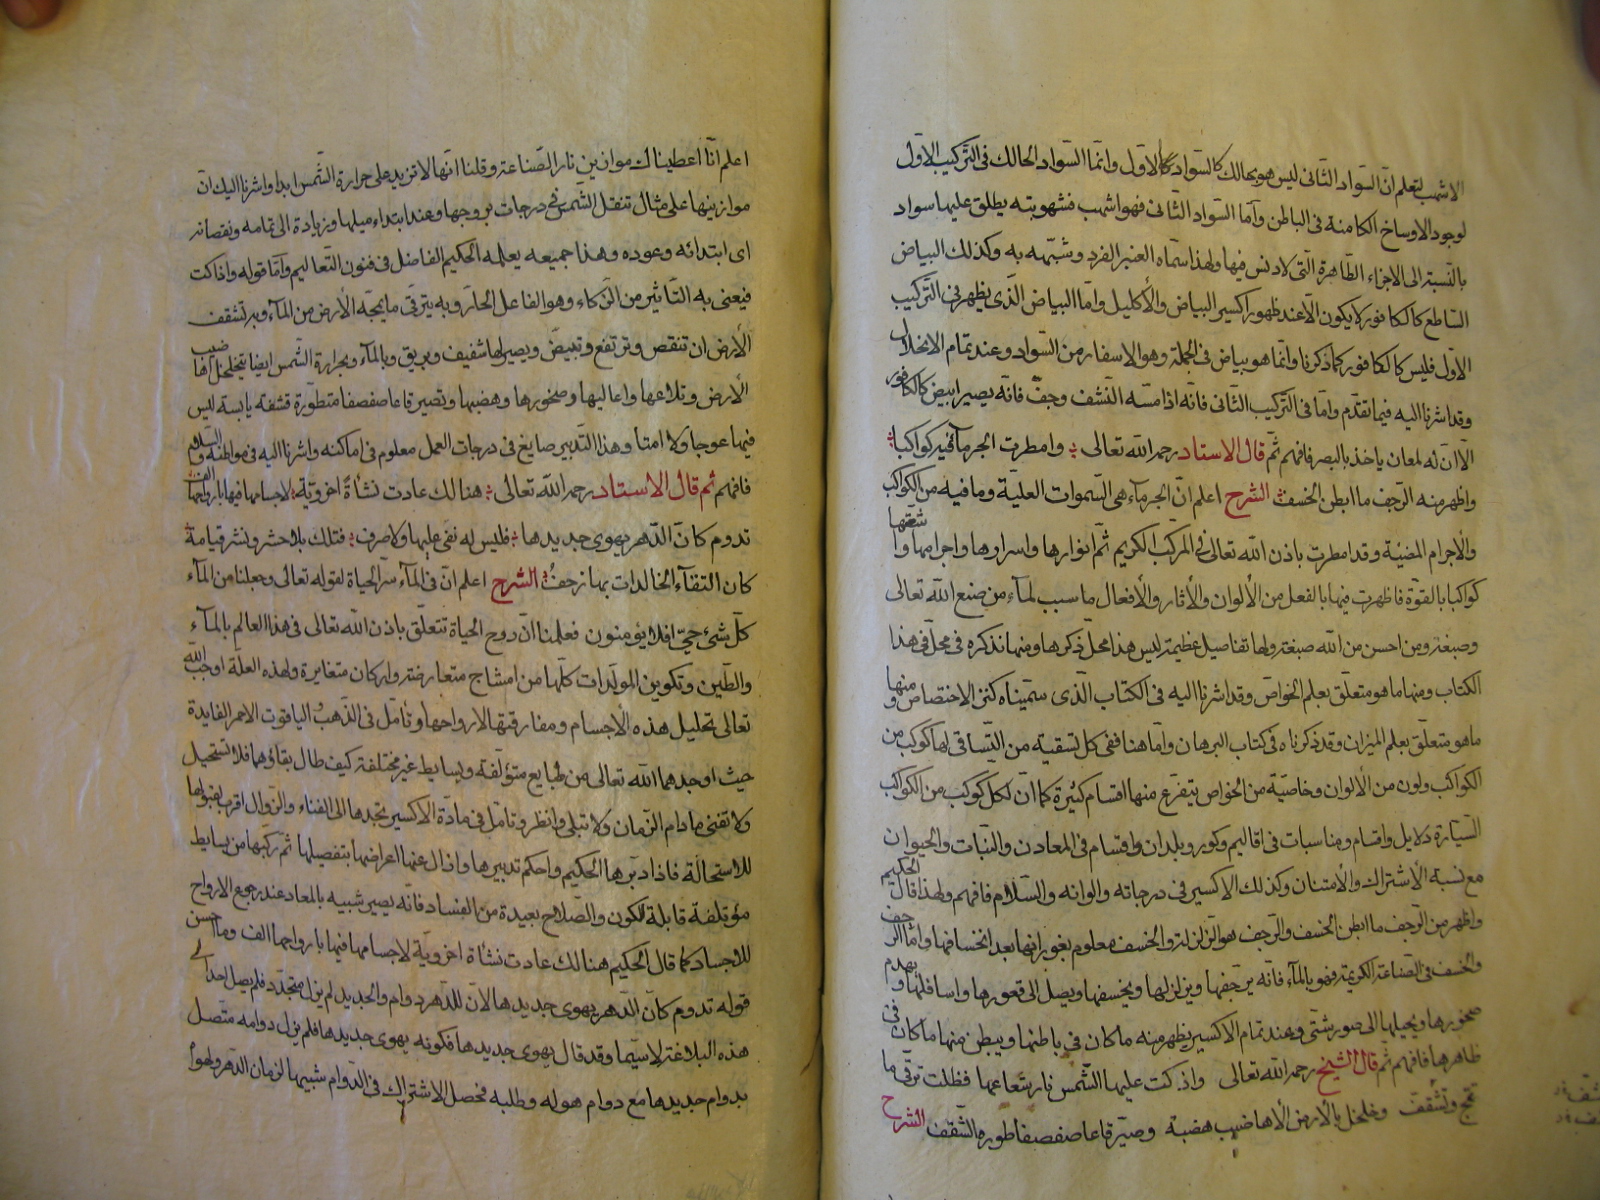 الاشهب لتعلم انّ السّواد الثّانى ليس هو بحالك كالسّواد الاوّل وانّما السّواد الحالك فى التّركيب الاوّل
لوجود الاوساخ الكامنة فى الباطن وامّا السّواد الثّانى فهو اشهب فشهوبته يطلق عليها سواد
بالنّسبة الى الاجزاء الطّاهرة الّتى لا دنس فيها ولهذا سمّاه العنبر الفرد وشبّهه به وكذلك البياض
السّاطع كالكافور لا يكون الّا عند ظهور اكسير البياض والأكليل وامّا البياض الّذى يظهر فى التّركيب
الاوّل فليس كالكافور كما ذكرنا وانّما هو بياض فى الجملة وهو الاسفار من السّواد وعند تمام الانحلال
وقد اشرنا اليه فيما تقدّم وامّا فى التّركيب الثّانى فانّه اذا مسّه النّشف وجفّ فانّه يصير ابيض كالكافور
الّا انّ له لمعان ياخذ بالبصر فافهم ثمّ قال الاستاد رحمه الله تعالى وامطرت الجرمآء فيه كواكبا
واظهر منه الرّجف ما ابطن الخسف الشرح اعلم انّ الجرمآء هى السّموات العليّة وما فيه من الكواكب
والأجرام المضيئة وقد امطرت باذن الله تعالى فى المركّب الكريم ثمّ انوارها واسرارها واجرامها واشعّتها
كواكبا بالقوّة فاظهرت فيها بالفعل من الألوان والأثار والأفعال ما سبب لمآء من صنع الله تعالى
وصبغة ومن احسن من الله صبغة ولها تفاصيل عظيمة ليس هذا محلّ ذكرها ومنها نذكره فى محلّ فى هذا
الكتاب ومنها ما هو متعلّق بعلم الخواصّ وقد اشرنا اليه فى الكتاب الّذى سمّيناه كنز الاختصاص ومنها
ما هو متعلّق بعلم الميزان وقد ذكرناه فى كتاب البرهان وامّا هنا ففى كلّ تسقية من التّساقى لها كوكب من
الكواكب ولون من الألوان وخاصيّة من الخواصّ يتفرّع منها اقسام كثيرة كما انّ لكلّ كوكب من الكواكب
السّيّارة دلايل واقسام ومناسبات فى اقاليم وكور وبلدان واقسام فى المعادن والنّبات والحيوان
مع نسبة الأشتراك والأمتنان وكذلك الاكسير فى درجاته والوانه والسّلام فافهم ولهذا قال الحكيم
واظهر من الرّجف ما ابطن الخسف والرّجف هو الزّلزلة والخسف معلوم بغورانها بعد انخسافها وامّا الرّجف
والخسف فى الصّناعة الكريمة فهو بالمآء فانّه يرجفها ويزلزلها ويخسفها ويصل الى قعورها واسافلها ويهدم
صخورها ويحيلها الى صور شتّى وعند تمام الاكسير يظهر منه ما كان فى باطنها ويبطن منها ما كان فى
ظاهرها فافهم ثمّ قال الشيخ رحمه الله تعالى واذ كت عليها الشّمس نار شعاعها فظلت ترقّى ما
تمجّ وتشقف وخلخل بالأرض الأهاضيب هضبة وصيّر قاعا صفصفا طوره الشّقف الشرح
اعلم انّا اعطيناك موازين نار الصّناعة وقلنا انّها لا تزيد على حرارة الشّمس ابدا واشرنا اليك انّ
موازينها على مثال تنقل الشّمس فى درجات بروجها وعند ابتداء ميلها وزيادة الى تمامه ونقصانه
اى ابتدائه وعوده وهذا جميعه يعلمه الحكيم الفاضل فى فنون التّعاليم وامّا قوله واذا كت
فيعنى به التّاثير من الذّكاء وهو الفاعل الحارّ وبه يترقّى ما يمجّه الأرض من المآء وبه تشقف
الأرض ان تنقص وترتفع وتبيضّ ويصير لها شفيف وبريق وبالمآء وبحرارة الشّمس ايضا يتخلخل اهاضيب
الأرض وتلاعها واعاليها وصخورها وهضبها وتصير قاعا صفصفا متطوّرة قشفه يابسة ليس
فيها عوجا ولا امتا وهذا التّدبير صايغ فى درجات العمل معلوم فى اماكنه واشرنا اليه فى مواطنه والسّلام
فافهم ثم قال الاستاد رحمه الله تعالى هنالك عادت نشأة اخرويّة لاجسامها فيها بارواحها الف
تدوم كانّ الدّهر يهوى جديدها فليس له نفى عليها ولا صرف فتلك بلا حشر ونشر قيامة
كان التقآء الخالدات بها زحف الشرح اعلم انّ فى المآء سرّ الحياة لقوله تعالى وجعلنا من المآء
كلّ شئ حىّ افلا يؤمنون فعلمنا انّ روح الحياة تتعلّق باذن الله تعالى فى هذا العالم بالمآء
والطّين وتكوين المولّدات كلّها من امشاج متعارضة واركان متغايرة ولهذه العلّة اوجب الله
تعالى تحليل هذه الأجسام ومفارقتها لارواحها وتامّل فى الذّهب والياقوت الاحمر الفايدة
حيث اوجدهما الله تعالى من طبايع متؤلّفة وبسايط غير مختلفة كيف طال بقاؤهما فلا تستحيل
ولا تفنى ما دام الزّمان ولا تبلى وانظر وتامّل فى مادّة الاكسير تجدها الى الفناء والزّوال اقرب بقبولها
للاستحالة فاذا دبّرها الحكيم واحكم تدبيرها وازال عنها اعراضها بتفصيلها ثمّ ركّبها من بسايط
مؤتلفة قابلة للكون والصّلاح بعيدة من الفساد فانّه يصير شبيه بالمعاد عند رجوع الارواح
للاجساد كما قال الحكيم هنالك عادت نشأة اخرويّة لاجسامها فيها بارواحها الف وما احسن
قوله تدوم كانّ الدّهر يهوى جديدها لانّ للدّهر دوام والجديد لم يزل متجدّد فلم يصل احدا لى
هذه البلاغة لاسيّما وقد قال يهوى جديدها فكونه يهوى جديدها فلم يزل دوامه متّصل
بدوام جديدها مع دوام هوله وطلبه فحصل الاشتراك فى الدّوام شبيها لزمان الدّهر ولهوا